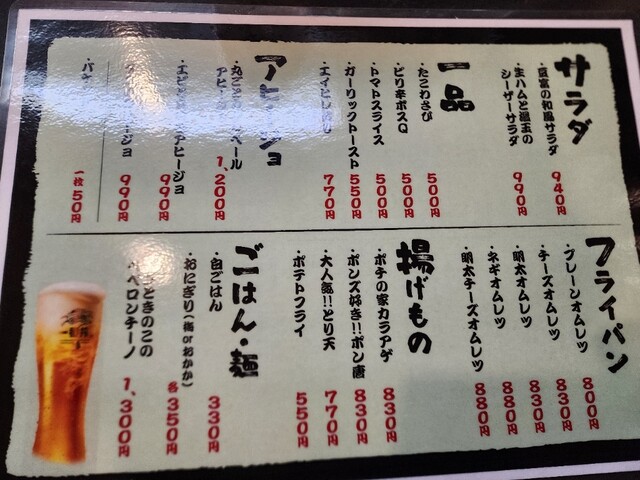 サラダ
・豆富の和風サラダ 940円
・生ハムと温玉の
シーザーサラダ 990円
一品
・たこわさび 500円
・ピリ辛ポスQ 500円
・トマトスライス 500円
・ガーリックトースト 550円
・エイヒレ炙り 770円
アヒージョ
・丸ごとカマンベール
アヒージョ 1,200円
アヒージョ 990円
ージョ 990円
・バゲ 一枚50円
フライパン
・プレーンオムレツ 800円
・チーズオムレツ 830円
・明太オムレツ 830円
・ネギオムレツ 880円
・明太チーズオムレツ 880円
揚げもの
・ポチの家カラアゲ 830円
・ポンズ好き!!ポン唐 830円
・大人気!!とり天 770円
・ポテトフライ 550円
ごはん・麺
・白ごはん 330円
・おにぎり(梅orおかか) 各350円
ときのこの
ペペロンチーノ 1,300円